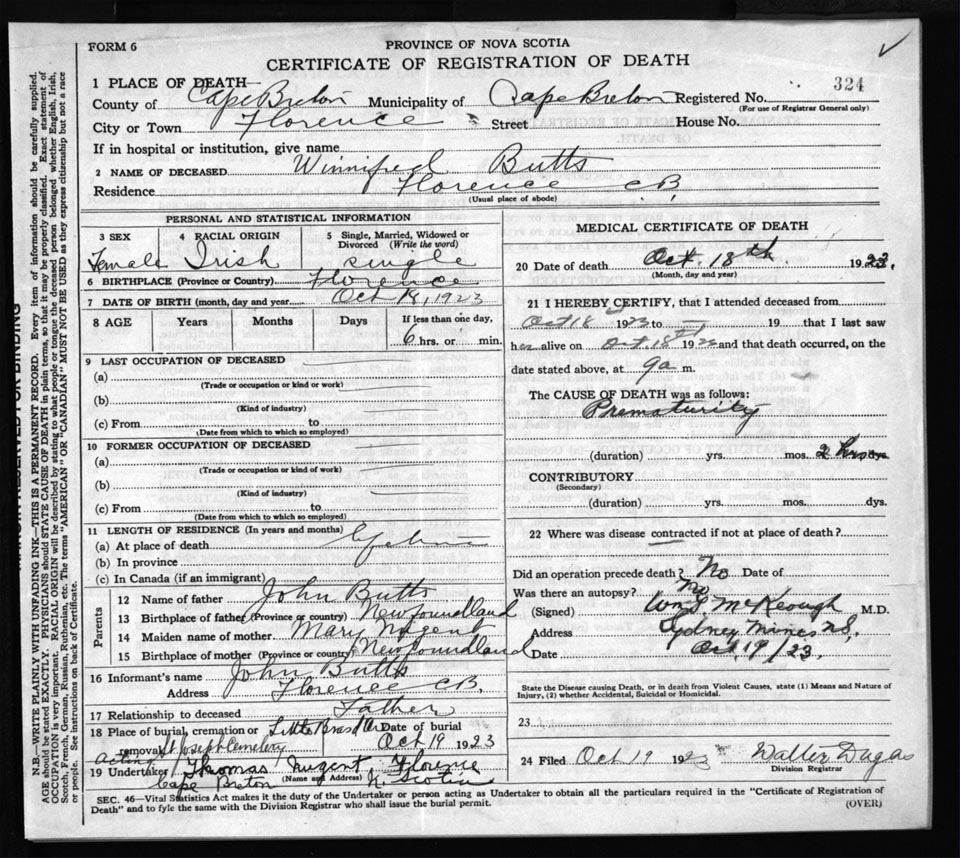 FORM 6
PROVINCE OF NOVA SCOTIA
CERTIFICATE OF REGISTRATION OF DEATH
324
1 PLACE OF DEATH
County of Cape Breton Municipality of Cape Breton Registered No.
(For use of Registrar General only)
City or Town Florence Street House No.
If in hospital or institution, give name
2 NAME OF DECEASED Winnifred Butts
Residence Florence C B
(Usual place of abode)
PERSONAL AND STATISTICAL INFORMATION
3 SEX 4 RACIAL ORIGIN 5 Single, Married, Widowed or Divorced (Write the word)
Female Irish single
6 BIRTHPLACE (Province or Country) Florence
7 DATE OF BIRTH (month, day and year) Oct 18, 1923
8 AGE Years Months Days If less than one day,
6 hrs. or min.
9 LAST OCCUPATION OF DECEASED
(a)
(Trade or occupation or kind or work)
(b)
(Kind of industry)
(c) From to
(Date from which to which so employed)
10 FORMER OCCUPATION OF DECEASED
(a)
(Trade or occupation or kind of work)
(b)
(Kind of industry)
(c) From to
(Date from which to which so employed)
11 LENGTH OF RESIDENCE (In years and months)
(a) At place of death
(b) In province
(c) In Canada (if an immigrant)
Parents
12 Name of father John Butts
13 Birthplace of father (Province or country) Newfoundland
14 Maiden name of mother Mary Nugent
15 Birthplace of mother (Province or country) Newfoundland
16 Informant's name John Butts
Address Florence C B.
17 Relationship to deceased Father
18 Place of burial, cremation or Little Bras d'Or Date of burial
removal St Joseph Cemetery Oct 19 1923
acting
19 Undertaker Thomas Nugent, Florence
(Name and Address)
Cape Breton N Scotia
MEDICAL CERTIFICATE OF DEATH
20 Date of death Oct. 18th 1923.
(Month, day and year)
21 I HEREBY CERTIFY, that I attended deceased from
Oct 18 1923 to 19 that I last saw
her alive on Oct. 18th 192 and that death occurred, on the
date stated above, at 9a m.
The CAUSE OF DEATH was as follows:
Prematurity
(duration) yrs. mos. 2 hrs dys.
CONTRIBUTORY
(Secondary)
(duration) yrs. mos. dys.
22 Where was disease contracted if not at place of death?
Did an operation precede death? No Date of
Was there an autopsy? No
(Signed) McKeough M.D.
Address Sydney Mines N.S.
Date Oct. 19/23.
State the Disease causing Death, or in Death from Violent Causes, state (1) Means and Nature of Injury, (2) whether Accidental, Suicidal or Homicidal.
23.
24 Filed Oct 19 1923 Walter Dugas
Division Registrar
SEC. 46—Vital Statistics Act makes it the duty of the Undertaker or person acting as Undertaker to obtain all the particulars required in the "Certificate of Registration of
Death" and to fyle the same with the Division Registrar who shall issue the burial permit.
(OVER)
RESERVED FOR BINDING
N.B.—WRITE PLAINLY WITH UNFADING INK—THIS IS A PERMANENT RECORD. Every item of information should be carefully supplied.
AGE should be stated EXACTLY. PHYSICIANS should STATE CAUSE OF DEATH in plain terms, so that it may be properly classified. Exact statement of
OCCUPATION is very important. RACIAL ORIGIN will be described by stating to what people or tongue the deceased person belonged whether English, Irish,
Scotch, French, German, Russian, Ruthenian, etc. The terms "AMERICAN" OR "CANADIAN" MUST NOT BE USED as they express citizenship but not a race
or people. See instructions on back of Certificate.